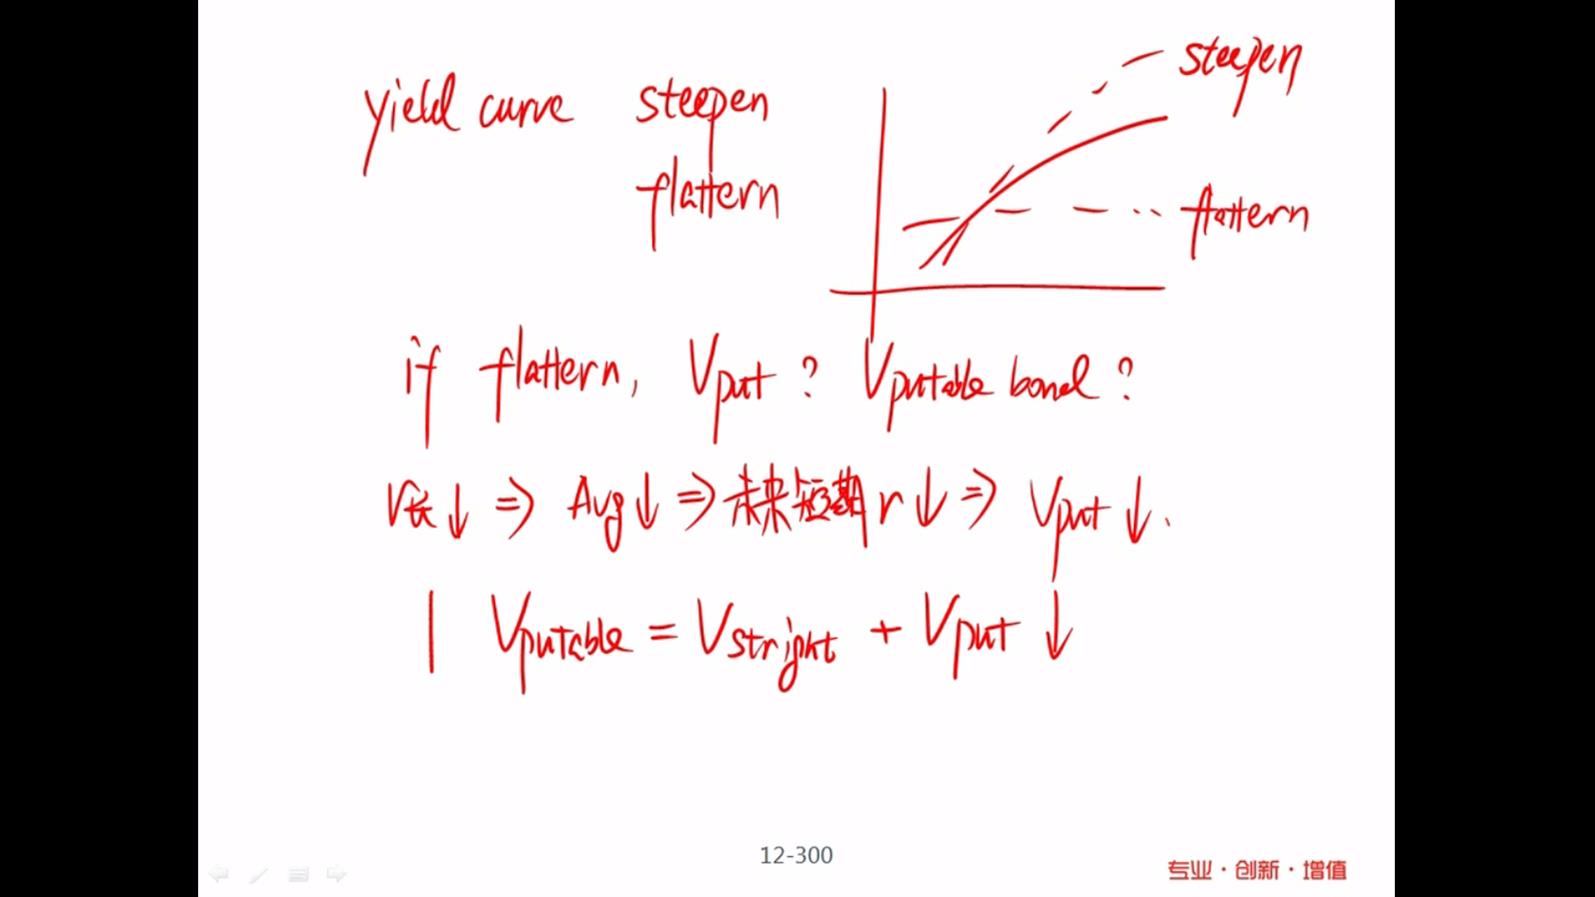 yield curve steepen
flattern
steepen
flattern
if flattern, Vput ? Vputable bond ?
r长↓ ⇒ Avg↓ ⇒ 未来短期 r↓ ⇒ Vput↓.
| Vputable = Vstright + Vput ↓
12-300
专业·创新·增值